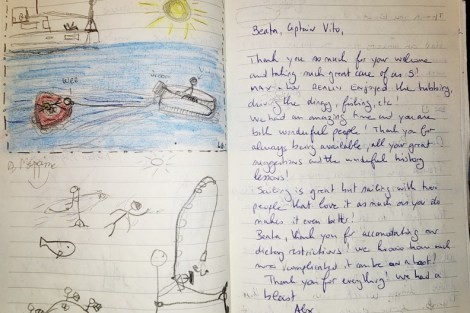 WEE
Beata, Captain Vito,
Thank you so much for your welcome
and taking such great care of us 5!
MAX + LOU REALLY ENJOYED the tubbing,
driving the dinggy, fishing, etc!
We had an amazing time and you are
both wonderful people! Thank you for
always being available, all your great
suggestions and the wonderful history
lessons!
Sailing is great but sailing with two
people that love it as much as you do
makes it even better!
Beata, thank you for accomodating our
dietary restrictions! We know how much
more complicated it can be on a boat!
Thank you for everything! We had a
blast
Alex